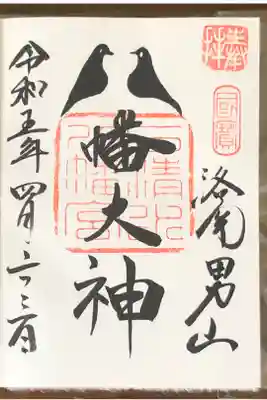 奉拝
国寳
洛南男山
八幡大神
石清水八幡宮
令和五年四月二十三日